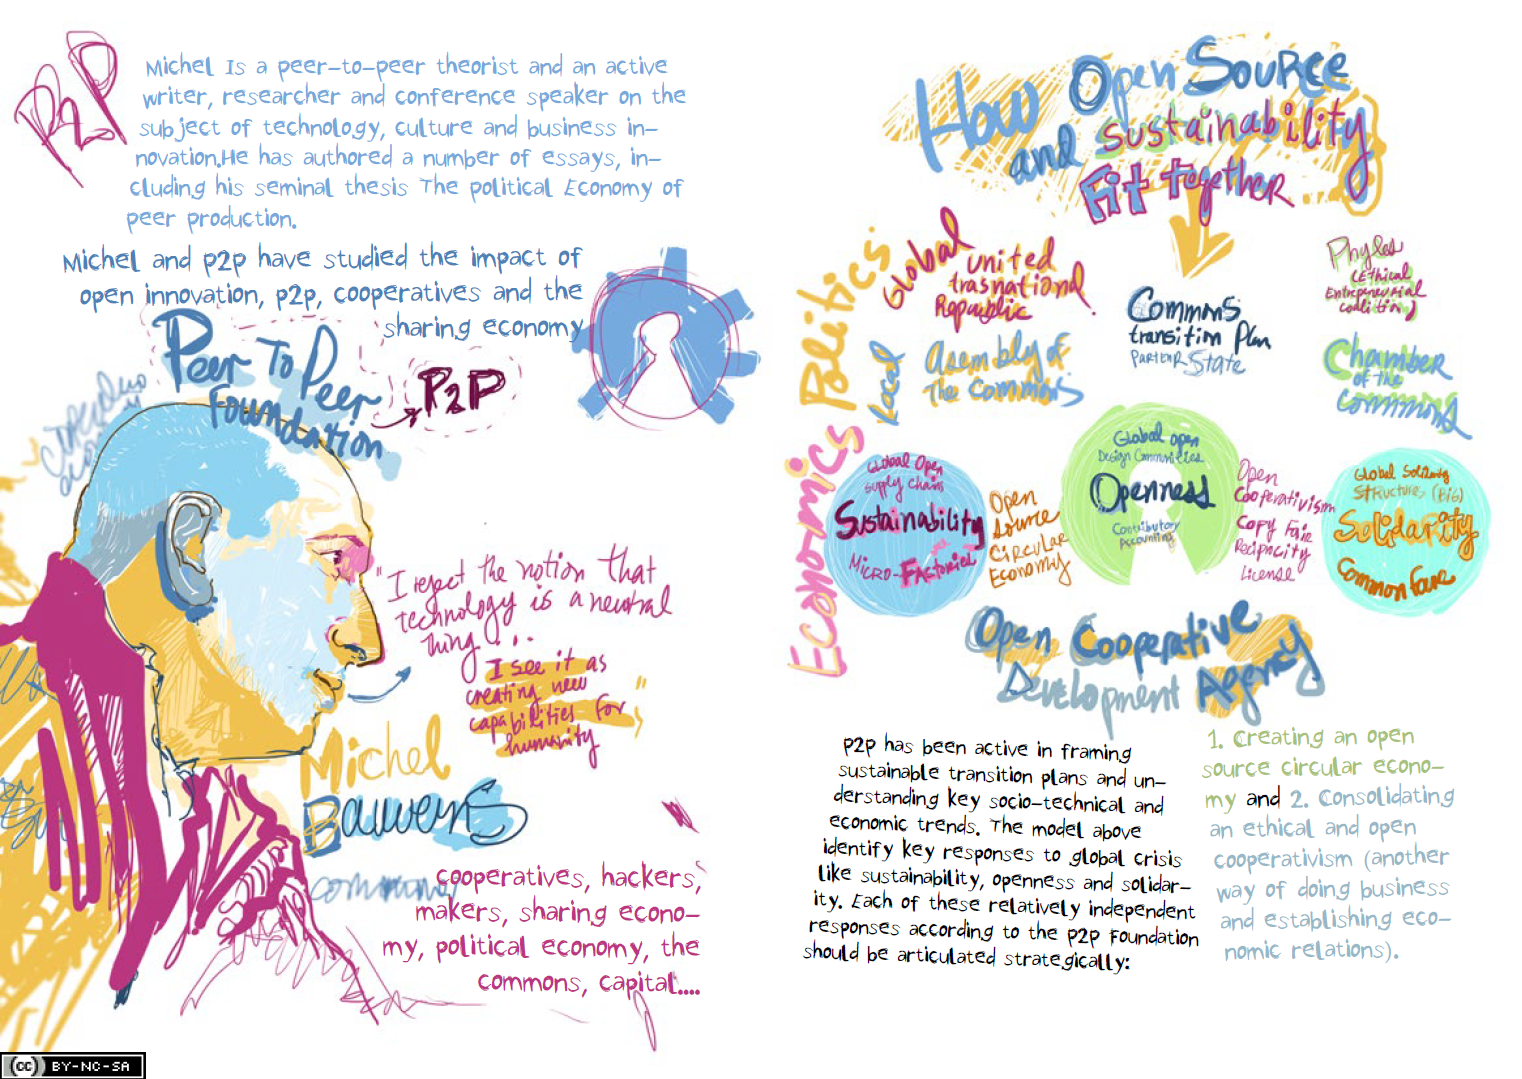 P2P
Michel Is a peer-to-peer theorist and an active
writer, researcher and conference speaker on the
subject of technology, culture and business in-
novation.He has authored a number of essays, in-
cluding his seminal thesis The political Economy of
peer production.
Michel and p2p have studied the impact of
open innovation, p2p, cooperatives and the
sharing economy
Peer To Peer
Foundation
P2P
"I reject the notion that
technology is a neutral
thing...
I see it as
creating new
capabilities for
humanity"
Michel
Bauwens
cooperatives, hackers,
makers, sharing econo-
my, political economy, the
commons, capital....
BY-NC-SA
How Open Source
and Sustainability
Fit together
Politics
Global
united
trasnational
Republic
Commons
transition Plan
Partner State
Phyles
(Ethical
Entrepeneurial
coalition)
Local
Asembly of
The Commons
Chamber
of the
Commons
Economics
Global Open
Supply Chain
Sustainability
Micro-Factories
Open
Source
Circular
Economy
Global open
Design Communities
Openness
Contributory
Accounting
Open
Cooperativism
Copy Fair
Reciprocity
License
Global Solidarity
Structures (Big)
Solidarity
Common Fare
Open Cooperative
Development Agency
p2p has been active in framing
sustainable transition plans and un-
derstanding key socio-technical and
economic trends. The model above
identify key responses to global crisis
like sustainability, openness and solidar-
ity. Each of these relatively independent
responses according to the p2p Foundation
should be articulated strategically:
1. Creating an open
source circular econo-
my and 2. Consolidating
an ethical and open
cooperativism (another
way of doing business
and establishing eco-
nomic relations).